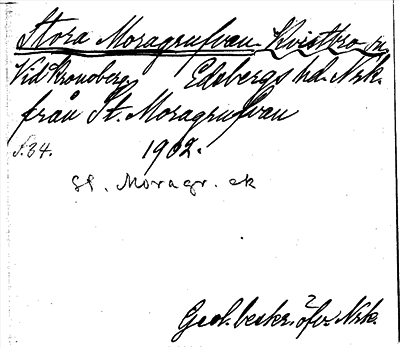 Stora Moragrufvan Kvistbro sn
Vid Kronoberg Edsbergs hd. Nrk.
från St. Moragrufvan
S. 34. 1902.
St. Moragr. ek
Geol. beskr. öfver Nrk.